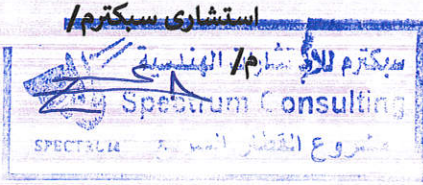 استشارى سبكترم/
سبكترم للإستشارات الهندسية
م/
Spectrum Consulting
SPECTRUM
مشروع القطار السريع